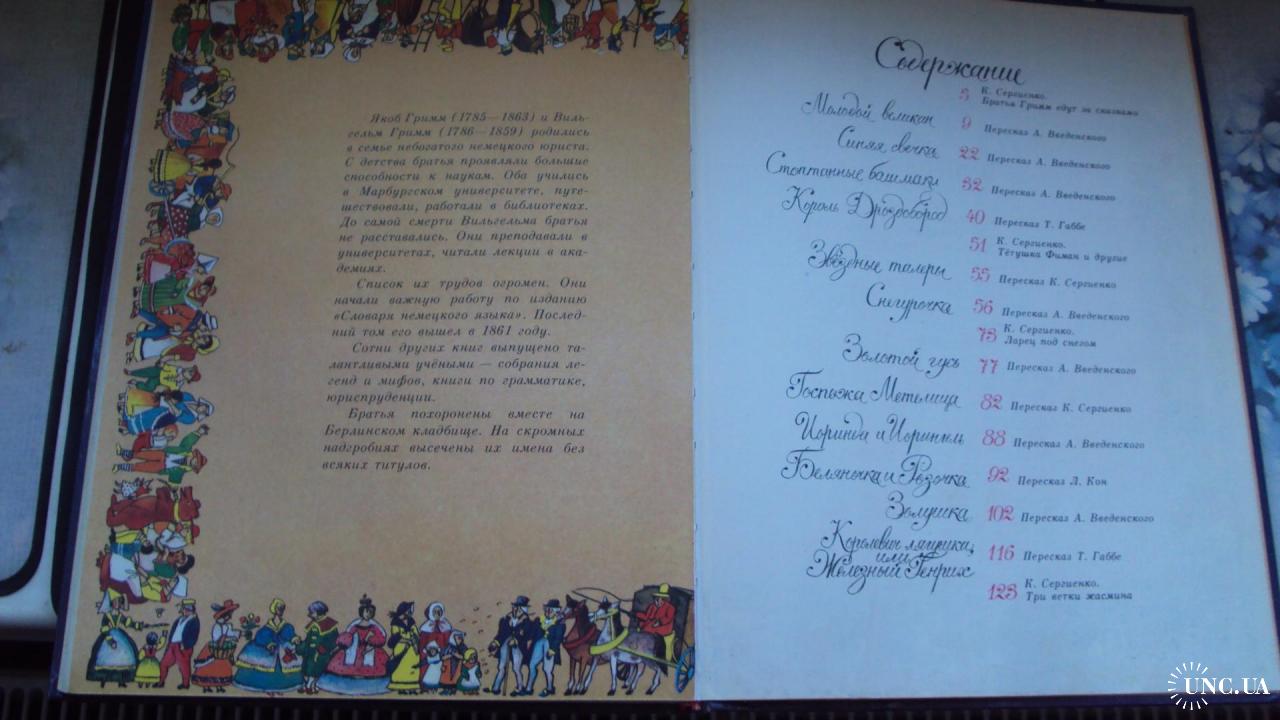 Якоб Гримм (1785—1863) и Виль-
гельм Гримм (1786—1859) родились
в семье небогатого немецкого юриста.
С детства братья проявляли большие
способности к наукам. Оба учились
в Марбургском университете, путе-
шествовали, работали в библиотеках.
До самой смерти Вильгельма братья
не расставались. Они преподавали в
университетах, читали лекции в ака-
демиях.
Список их трудов огромен. Они
начали важную работу по изданию
«Словаря немецкого языка». Послед-
ний том его вышел в 1861 году.
Сотни других книг выпущено та-
лантливыми учёными — собрания ле-
генд и мифов, книги по грамматике,
юриспруденции.
Братья похоронены вместе на
Берлинском кладбище. На скромных
надгробиях высечены их имена без
всяких титулов.
Содержание
5 К. Сергиенко.
Братья Гримм едут за сказками
Молодой великан 9 Пересказ А. Введенского
Синяя свечка 22 Пересказ А. Введенского
Стоптанные башмаки 32 Пересказ А. Введенского
Король Дроздобород 40 Пересказ Т. Габбе
51 К. Сергиенко.
Тётушка Фиман и другие
Звёздные талеры 55 Пересказ К. Сергиенко
Снегурочка 56 Пересказ А. Введенского
73 К. Сергиенко.
Ларец под снегом
Золотой гусь 77 Пересказ А. Введенского
Госпожа Метелица 82 Пересказ К. Сергиенко
Иоринда и Иорингель 88 Пересказ А. Введенского
Беляночка и Розочка 92 Пересказ Л. Кон
Золушка 102 Пересказ А. Введенского
Королевич лягушка,
или
Железный Генрих 116 Пересказ Т. Габбе
123 К. Сергиенко.
Три ветки жасмина
UNC.UA